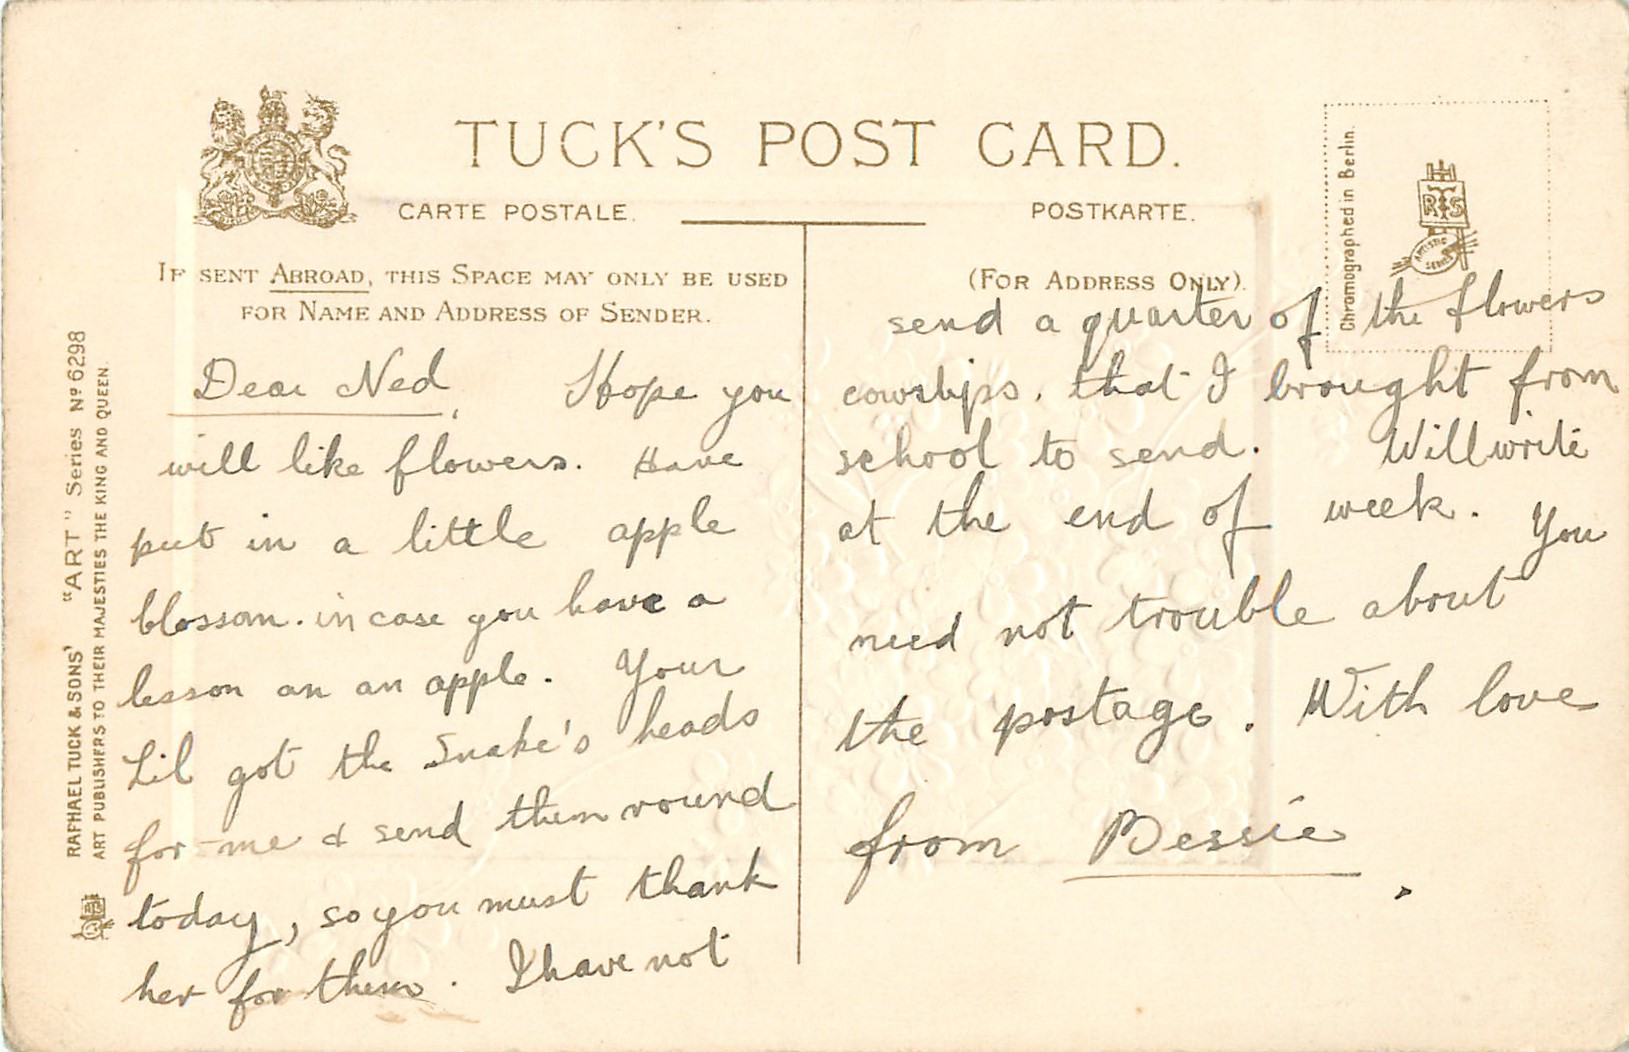 TUCK'S POST CARD.
CARTE POSTALE.
POSTKARTE.
IF SENT ABROAD, THIS SPACE MAY ONLY BE USED
FOR NAME AND ADDRESS OF SENDER.
(FOR ADDRESS ONLY).
Chromographed in Berlin.
R T S
ARTISTIC
SERIES
RAPHAEL TUCK & SONS' "ART" Series No 6298
ART PUBLISHERS TO THEIR MAJESTIES THE KING AND QUEEN.
Dear Ned, Hope you
will like flowers. Have
put in a little apple
blossom. in case you have a
lesson on an apple. Your
Lil got the Snake's heads
for me & send them round
today, so you must thank
her for them. I have not
send a quarter of the flowers
cowslips, that I brought from
school to send. Will write
at the end of week. You
need not trouble about
the postage. With love
from Bessie.